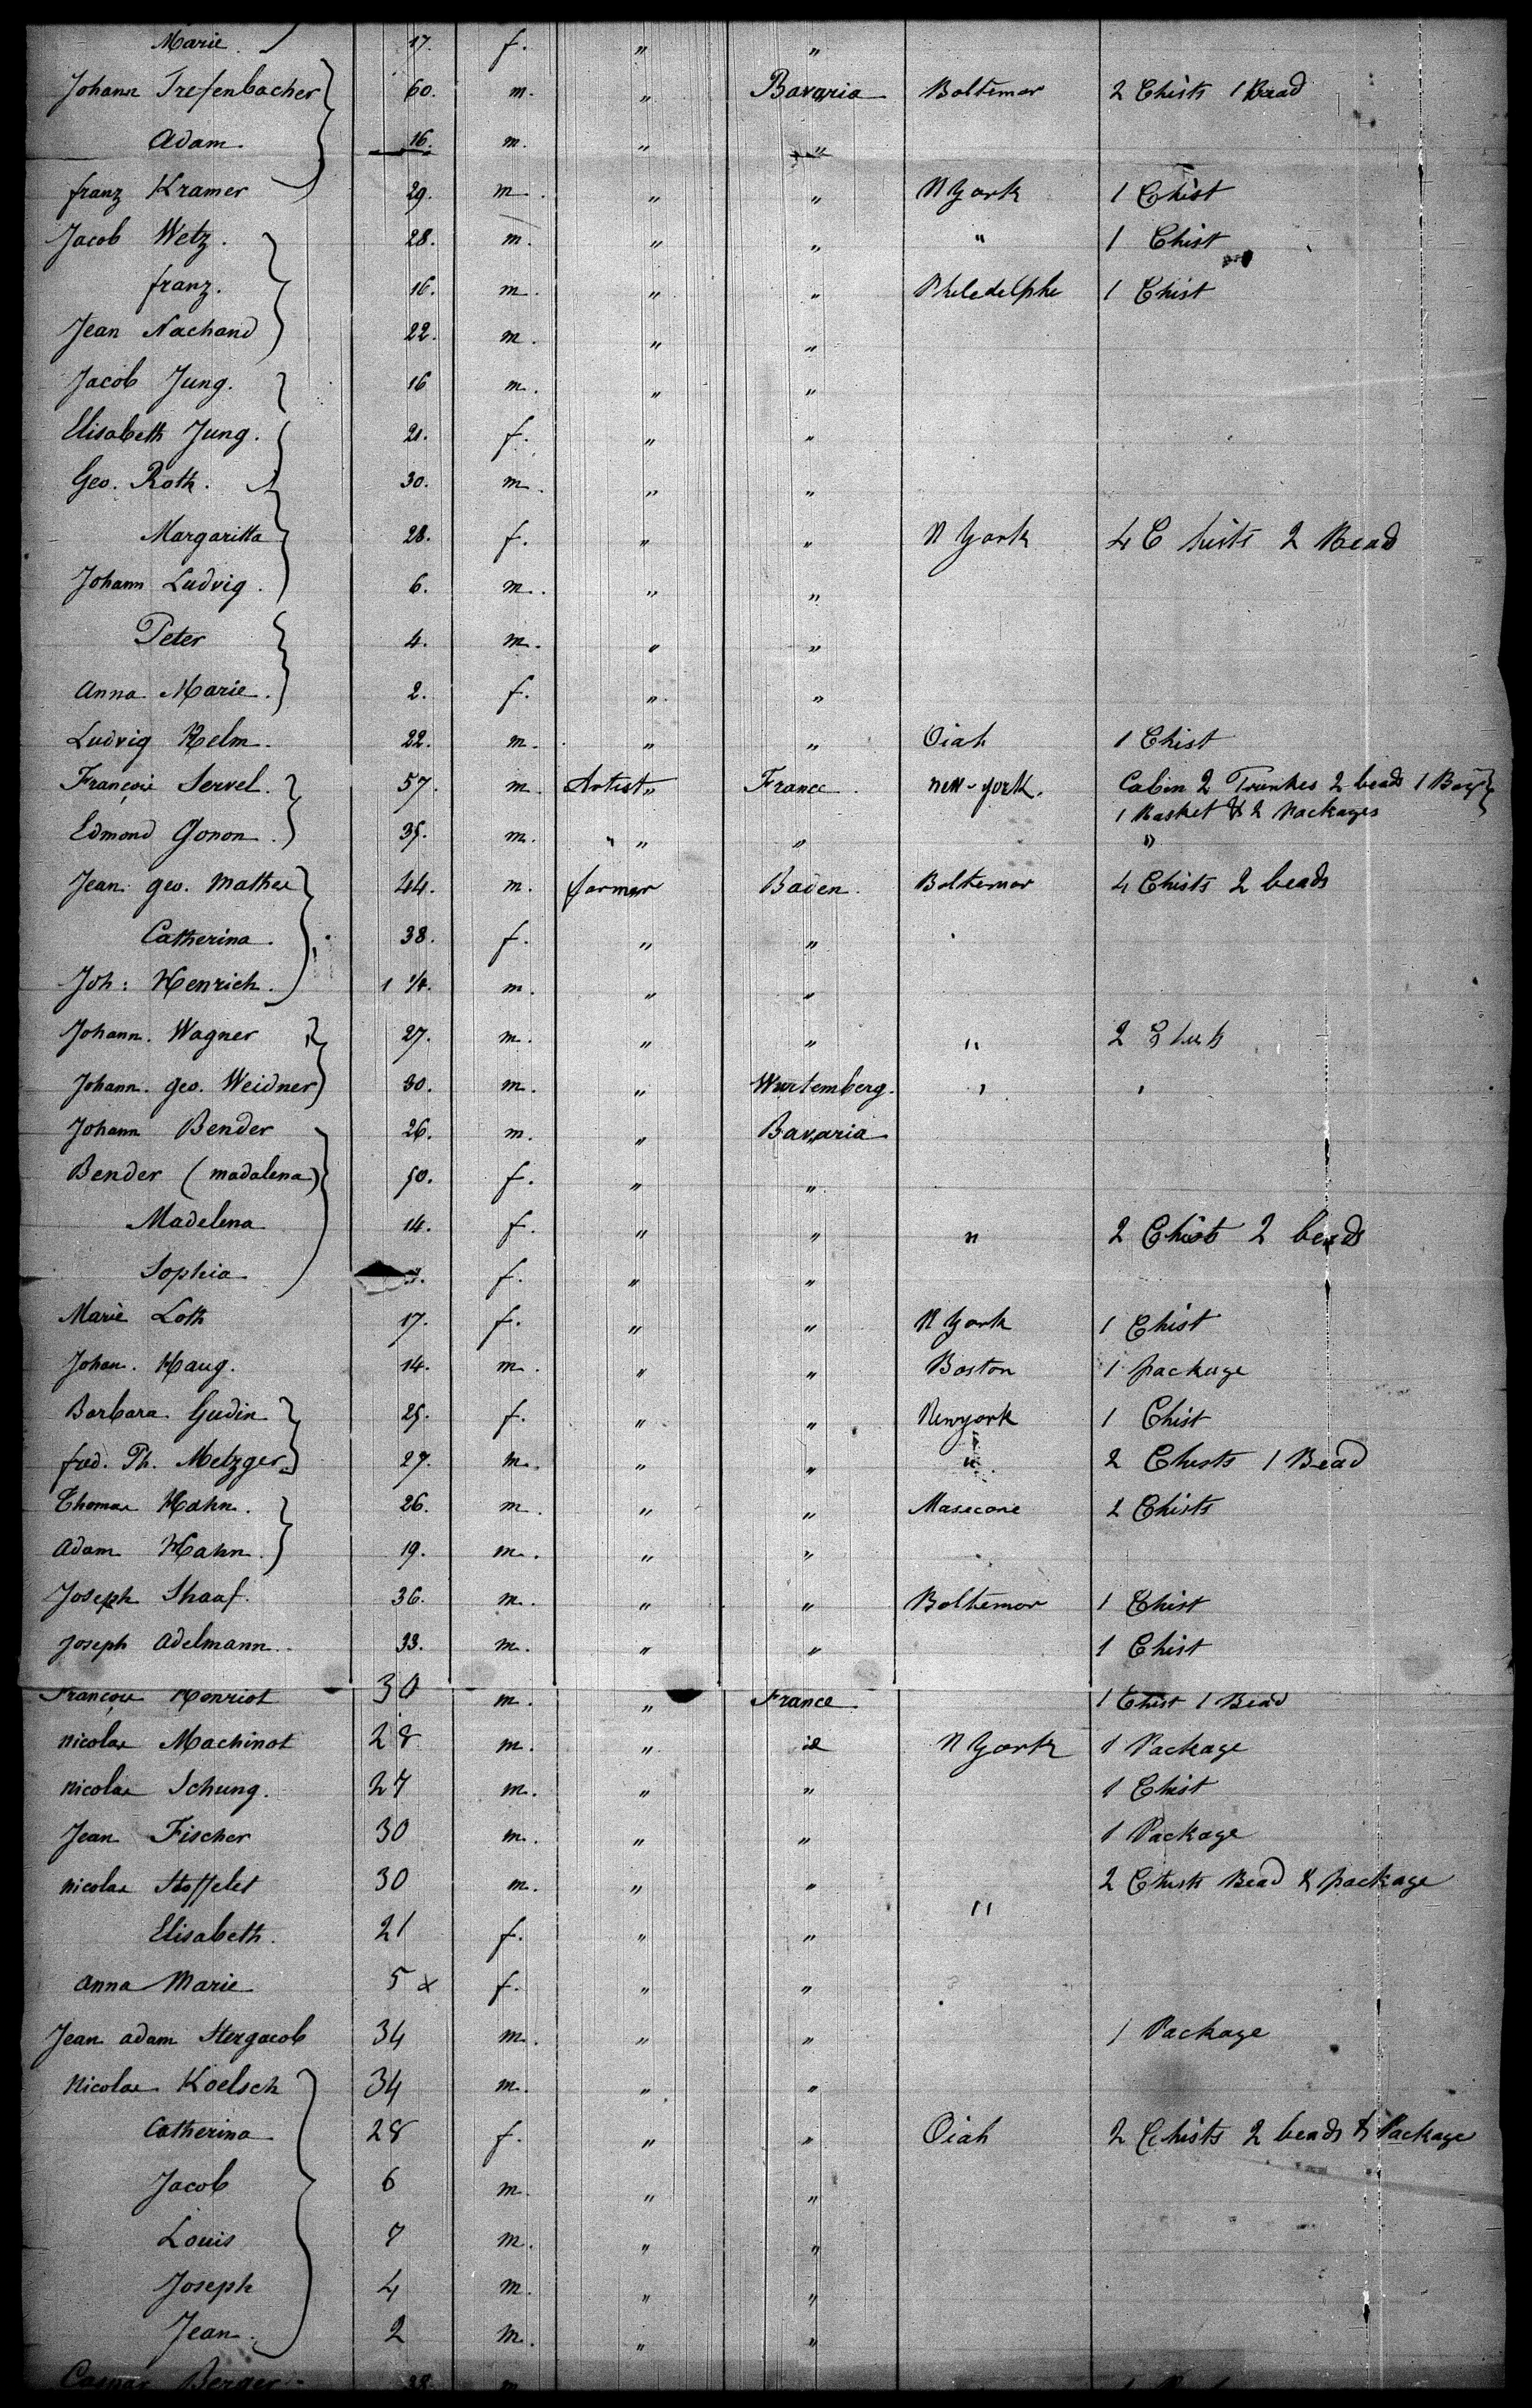 Marie. 17. f. " "
Johann Trefenbacher 60. m. " Bavaria Boltemor 2 Chists 1 Bead
Adam. 16. m. " "
franz Kramer 29. m. " " N York 1 Chist
Jacob Wetz. 28. m. " " " 1 Chist
franz. 16. m. " " Philedelphe 1 Chist
Jean Nachand 22. m. " "
Jacob Jung. 16 m. " "
Elisabeth Jung. 21. f. " "
Geo. Roth. 30. m. " "
Margaritta 28. f. " " N York 4 Chists 2 Bead
Johann Ludvig. 6. m. " "
Peter 4. m. " "
Anna Marie. 2. f. " "
Ludvig Helm. 22. m. " " Oiah 1 Chist
Françoie Servel. 57. m. Artist " France new-york. Cabin 2 Trunkes 2 beads 1 Bag
1 Basket & 2 Packages
Edmond Gonon. 35. m. " " " "
Jean geo. Mathee 44. m. farmer Baden. Boltemor 4 Chists 2 beads
Catherina. 38. f. " "
Joh: Henrich. 1 1/4. m. " "
Johann. Wagner 27. m. " " " 2
Johann. geo. Weidner 30. m. " Wurtemberg. " "
Johann Bender 26. m. " Bavaria
Bender (madalena) 50. f. " "
Madelena 14. f. " " " 2 Chists 2 beads
Sophia f. " "
Marie Loth 17. f. " " N York 1 Chist
Johan. Haug. 14. m. " " Boston 1 package
Barbara Gudin 25. f. " " Newyork 1 Chist
fred. Ph. Metzger. 27. m. " " " 2 Chests 1 Bead
Thomas Hahn. 26. m. " " Masecone 2 Chists
Adam Hahn. 19. m. " "
Joseph Shaaf. 36. m. " " Boltemor 1 Chist
Joseph Adelmann. 33. m. " " 1 Chist
Françoie Henriot 30 m. " France 1 Chist 1 Bead
Nicolas Machinot 28 m. " id N York 1 Package
Nicolas Schung. 27 m. " " 1 Chist
Jean Fischer 30 m. " " 1 Package
Nicolas Stoffelet 30 m. " " " 2 Chists Bead & package
Elisabeth. 21 f. " "
Anna Marie 5 x f. " "
Jean adam Stergacob 34 m. " " 1 Package
Nicolas Koelsch 34 m. " "
Catherina 28 f. " " Oiah 2 Chists 2 beads & Package
Jacob 6 m. " "
Louis 7 m. " "
Joseph 4 m. " "
Jean. 2 m. " "
Berger. 38. m